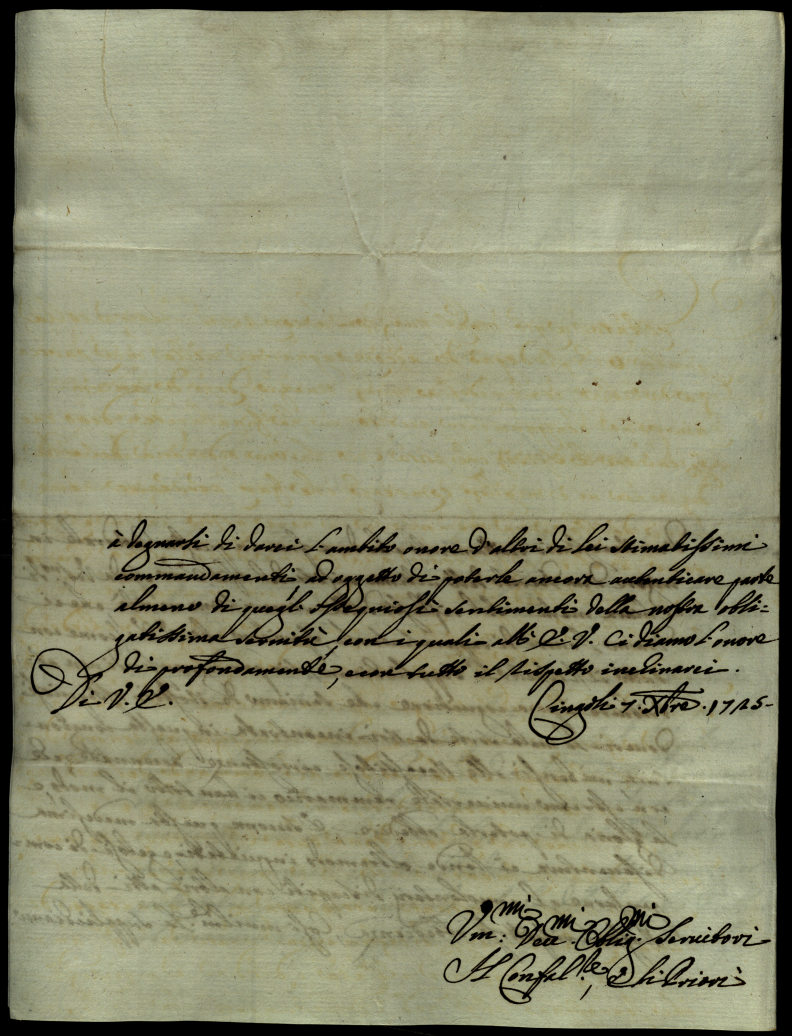 à degnarsi di darci l'ambito onore d'altri di lei stimatissimi
commandamenti ad oggetto di poterle ancora autenticare parte
almeno di quegl' ossequiosi sentimenti della nostra obli=
gatissima servitù, con i quali all' E. V. ci diamo l'onore
di profondamente, e con tutto il rispetto inclinarci.
Di V. E. Cingoli 7. Xbre. 1725-
Vm:mi Dev:mi Oblig:mi Servitori
Il Confal:re, e li Priori